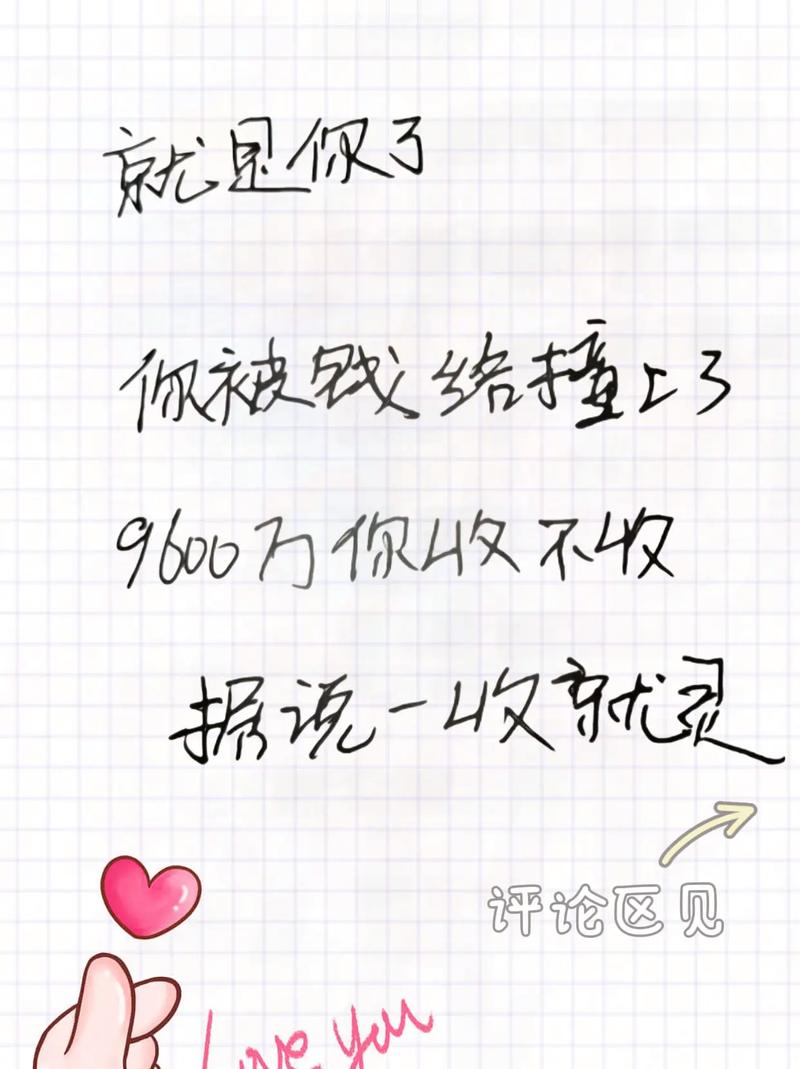 就是你了
你被钱给撞上了
9600万你收不收
据说一收就灵
评论区见
Love you